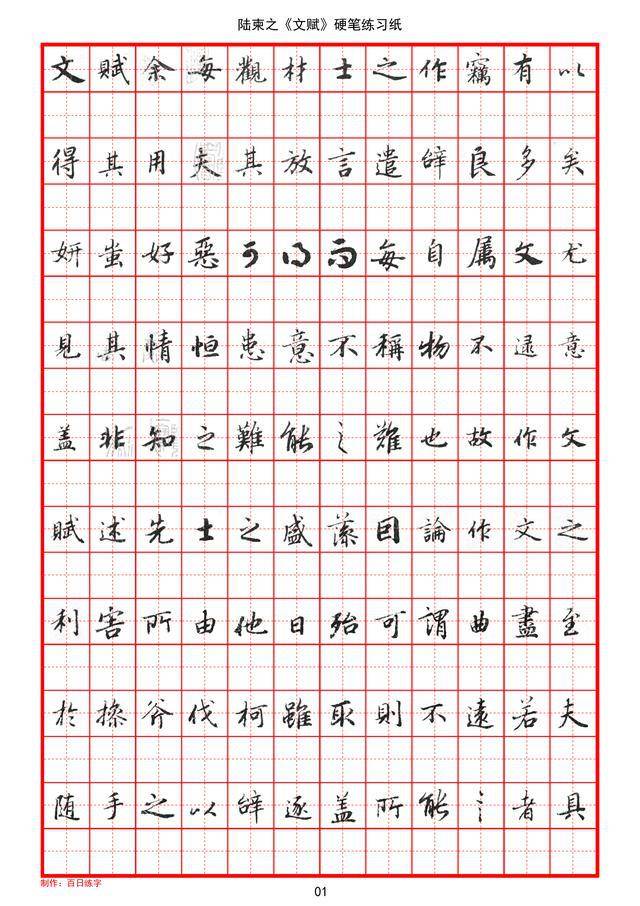 陆柬之《文赋》硬笔练习纸
文賦余每觀材士之作竊有以
得其用夫其放言遣辭良多矣
妍蚩好惡可得而每自属文尤
見其情恒患意不稱物不逮意
盖非知之難能之難也故作文
賦述先士之盛藻因論作文之
利害所由他日殆可謂曲盡至
於操斧伐柯雖取則不遠若夫
随手之以辭逐盖所能言者具
制作：百日练字
01